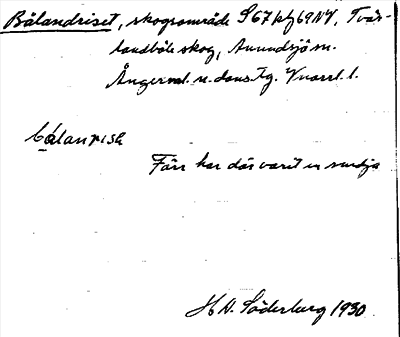 Bålandriset, skogsområde S67 kfj 69 NV, Tvär-
landböle skog, Anundsjö sn.
Ångerml. n. doms.tg. Vnorrl. l.
bálanrisɛ
Förr har där varit en smedja
H N. Söderberg 1930